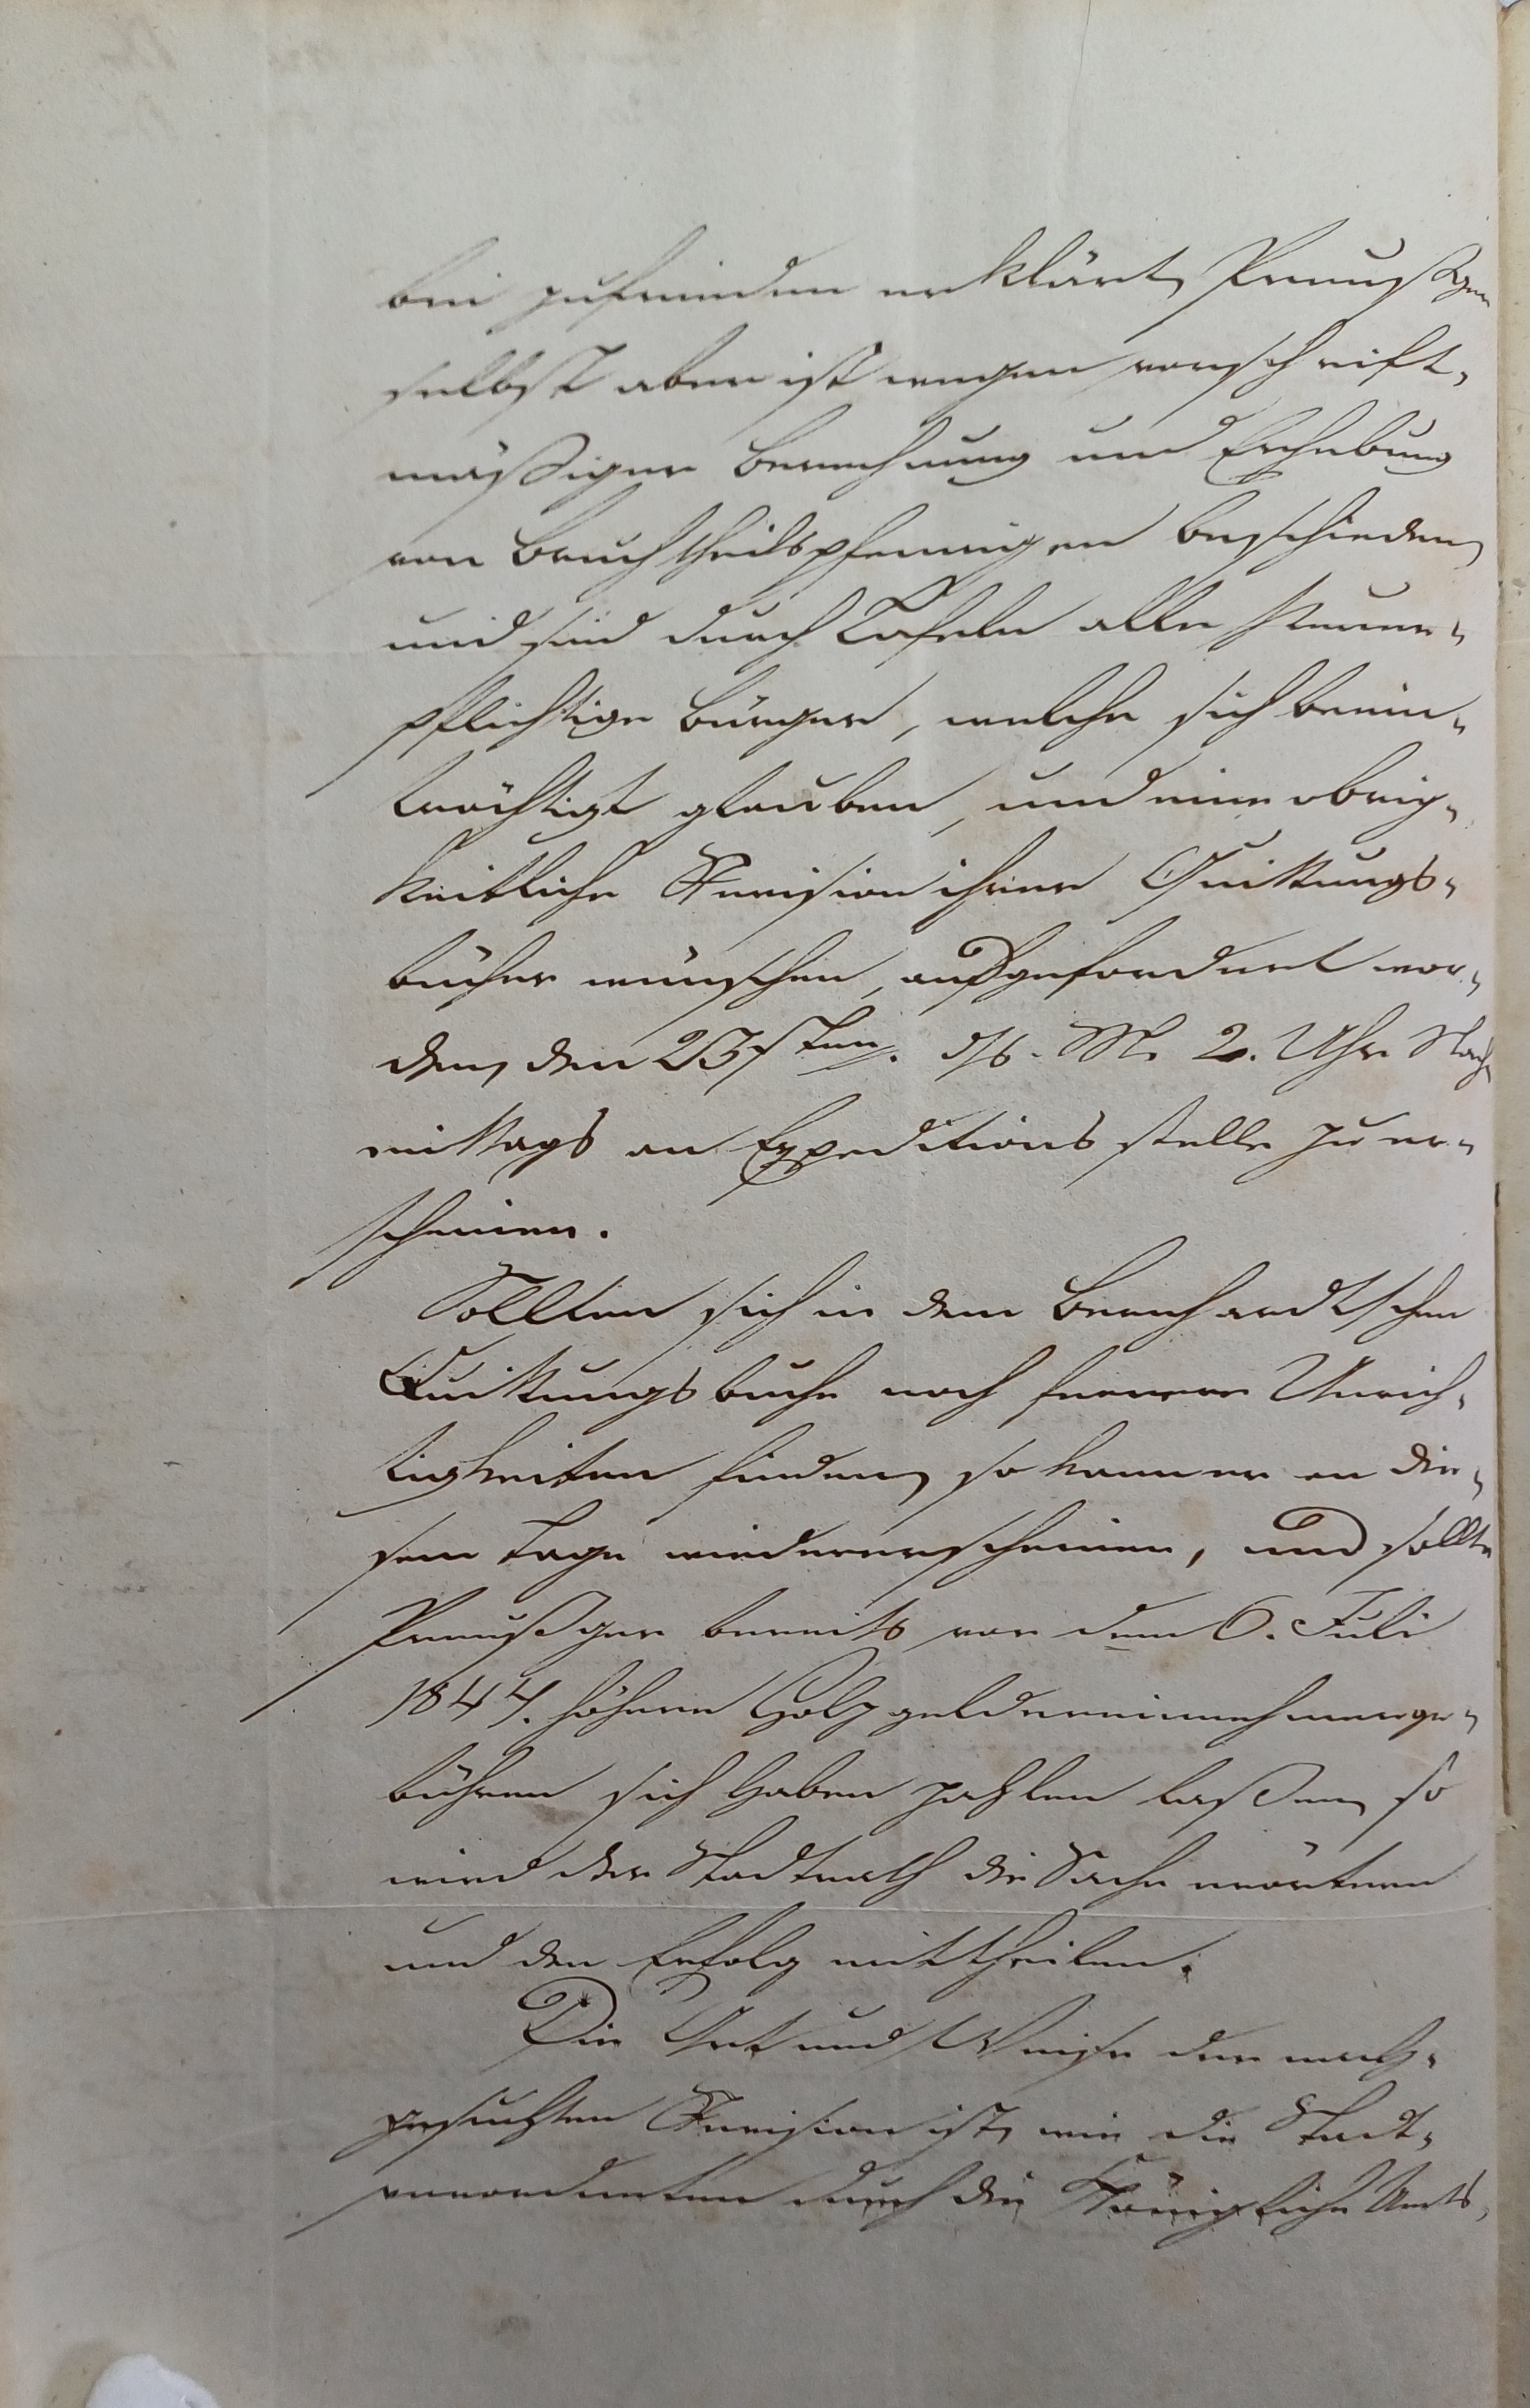 bei zufrieden erklärt, Preußger
selbst aber ist wegen vorschrift-
mäßiger Berechnung und Erhebung
von Bruchtheilspfennigen beschieden,
und sind durch Tafeln alle steuer-
pflichtige Bürger, welche sich beein-
trächtigt glauben, und eine obrig-
keitliche Revision ihrer Quittungs-
bücher wünschen, aufgefordert wor-
den, den 23sten. dß. M. 2. Uhr Nach-
mittags an Expeditionsstelle zu er-
scheinen.
Sollten sich in dem Bernhardtschen
Quittungsbuche noch fernere Unrich-
tigkeiten finden, so kann er an die-
sem Tage wiedererscheinen, und sollte
Preußger bereits vor dem 6. Juli
1844. höhere Holzgeldereinnehmerge-
bühren sich haben zahlen laßen, so
wird der Stadtrath die Sache erörtern
und den Erfolg mittheilen.
Die Art und Weise der nach-
gesuchten Revision ist, wie die Stadt-
verordneten durch die Königliche Amts-